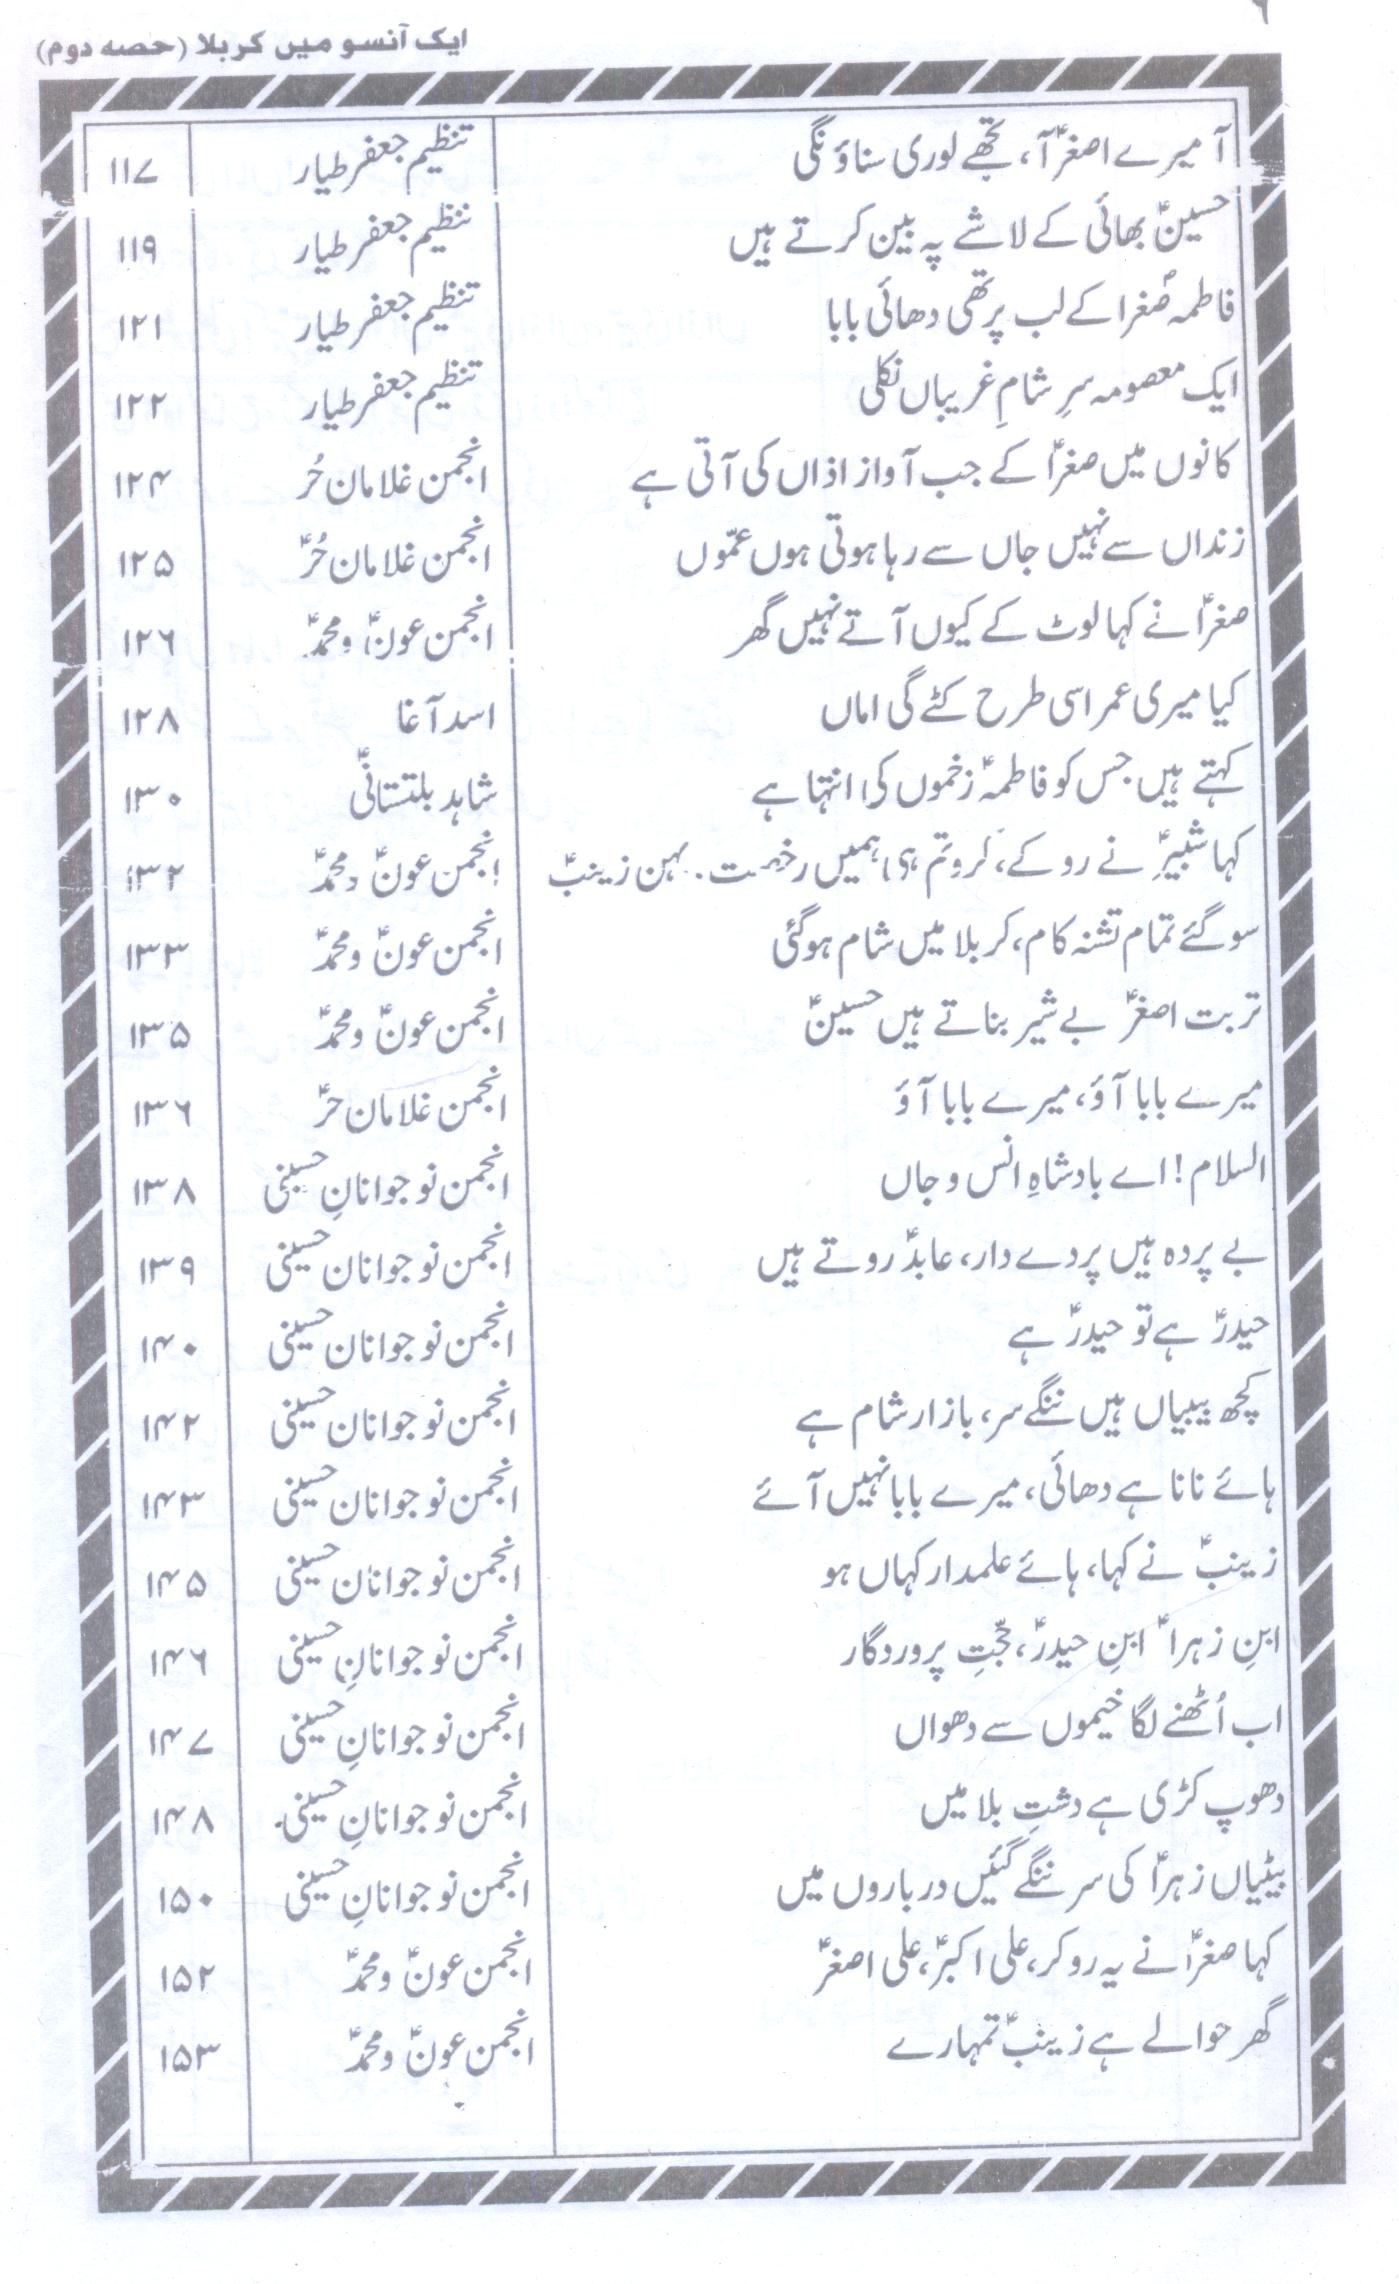 ۶
ایک آنسو میں کربلا (حصہ دوم)
آ میرے اصغرؑ آ، تجھے لوری سناؤنگی تنظیم جعفر طیار ۱۱۷
حسینؑ بھائی کے لاشے پہ بین کرتے ہیں تنظیم جعفر طیار ۱۱۹
فاطمہ صغراؑ کے لب پر تھی دھائی بابا تنظیم جعفر طیار ۱۲۱
ایک معصومہ سرِ شامِ غریباں نکلی تنظیم جعفر طیار ۱۲۲
کانوں میں صغراؑ کے جب آواز اذاں کی آتی ہے انجمن غلامان حُر ۱۲۴
زنداں سے نہیں جاں سے رہا ہوتی ہوں عمّوں انجمن غلامان حُرؑ ۱۲۵
صغراؑ نے کہا لوٹ کے کیوں آتے نہیں گھر انجمن عونؑ و محمدؑ ۱۲۶
کیا میری عمر اسی طرح کٹے گی اماں اسد آغا ۱۲۸
کہتے ہیں جس کو فاطمہؑ زخموں کی انتہا ہے شاہد بلتستانیؒ ۱۳۰
کہا شبیرؑ نے رو کے، کرو تم ہی ہمیں رخصت۔ بہن زینبؑ انجمن عونؑ و محمدؑ ۱۳۲
سو گئے تمام تشنہ کام، کربلا میں شام ہوگئی انجمن عونؑ و محمدؑ ۱۳۳
تربت اصغرؑ بے شیر بناتے ہیں حسینؑ انجمن عونؑ و محمدؑ ۱۳۵
میرے بابا آؤ، میرے بابا آؤ انجمن غلامان حرؑ ۱۳۶
السلام! اے بادشاہِ انس و جاں انجمن نوجوانانِ حسینی ۱۳۸
بے پردہ ہیں پردے دار، عابدؑ روتے ہیں انجمن نوجوانان حسینی ۱۳۹
حیدرؑ ہے تو حیدرؑ ہے انجمن نوجوانان حسینی ۱۴۰
کچھ بیبیاں ہیں ننگے سر، بازار شام ہے انجمن نوجوانان حسینی ۱۴۲
ہائے نانا ہے دھائی، میرے بابا نہیں آئے انجمن نوجوانان حسینی ۱۴۳
زینبؑ نے کہا، ہائے علمدار کہاں ہو انجمن نوجوانان حسینی ۱۴۵
ابنِ زہراؑ ابنِ حیدرؑ، حجّتِ پروردگار انجمن نوجوانانِ حسینی ۱۴۶
اب اُٹھنے لگا خیموں سے دھواں انجمن نوجوانانِ حسینی ۱۴۷
دھوپ کڑی ہے دشتِ بلا میں انجمن نوجوانانِ حسینی ۱۴۸
بیٹیاں زہراؑ کی سر ننگے گئیں درباروں میں انجمن نوجوانانِ حسینی ۱۵۰
کہا صغراؑ نے یہ رو کر، علی اکبرؑ، علی اصغرؑ انجمن عونؑ و محمدؑ ۱۵۲
گھر حوالے ہے زینبؑ تمہارے انجمن عونؑ و محمدؑ ۱۵۳